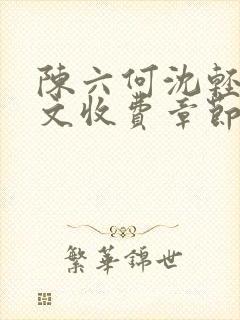 陳六何沈輕
文收費章節
繁華錦世